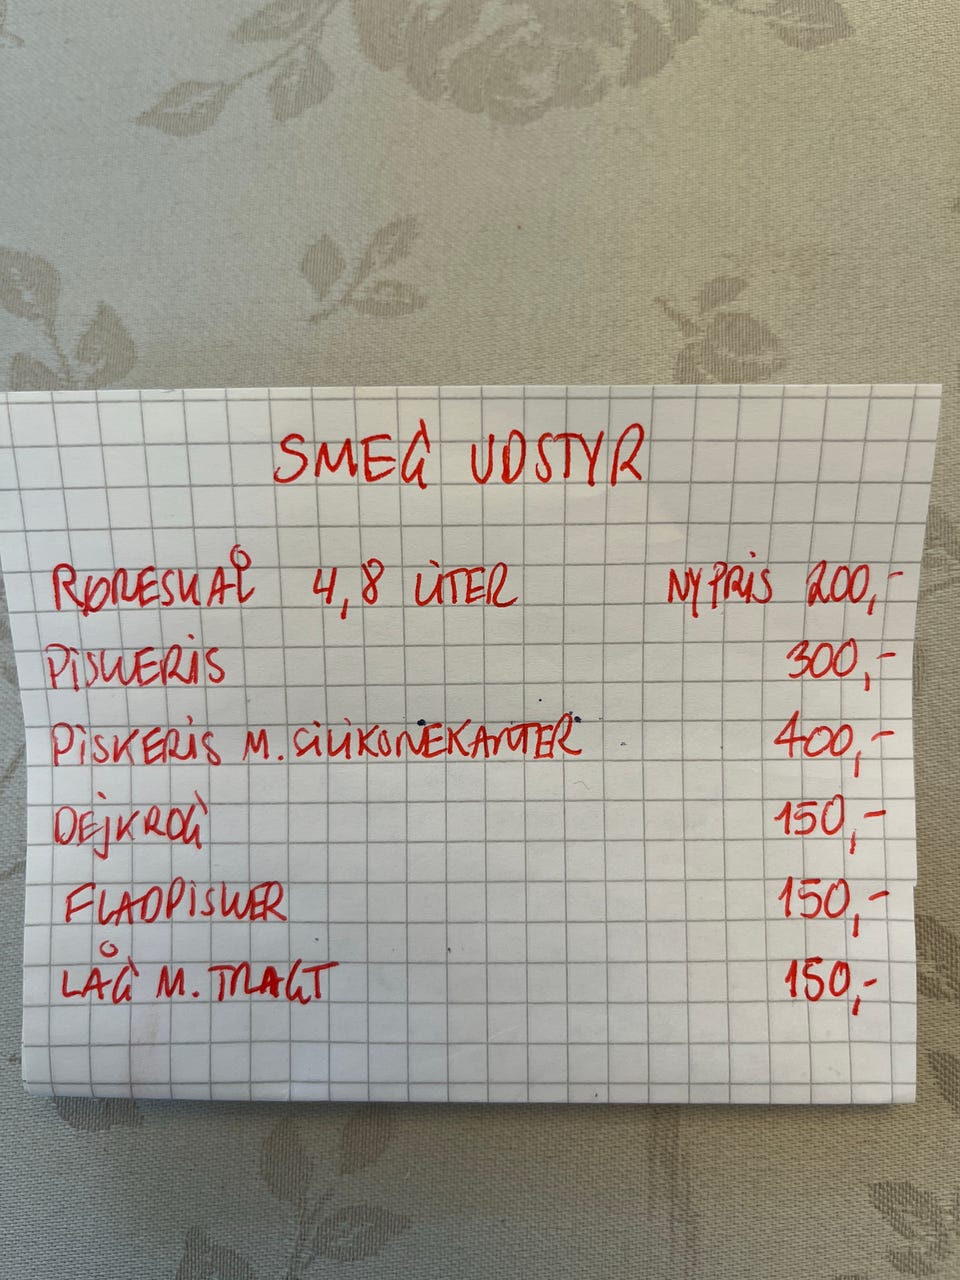 SMEG UDSTYR
RØRESKÅL 4,8 LITER NYPRIS 200,-
PISKERIS 300,-
PISKERIS M. SILIKONEKANTER 400,-
DEJKROG 150,-
FLADPISKER 150,-
LÅG M. TRAGT 150,-